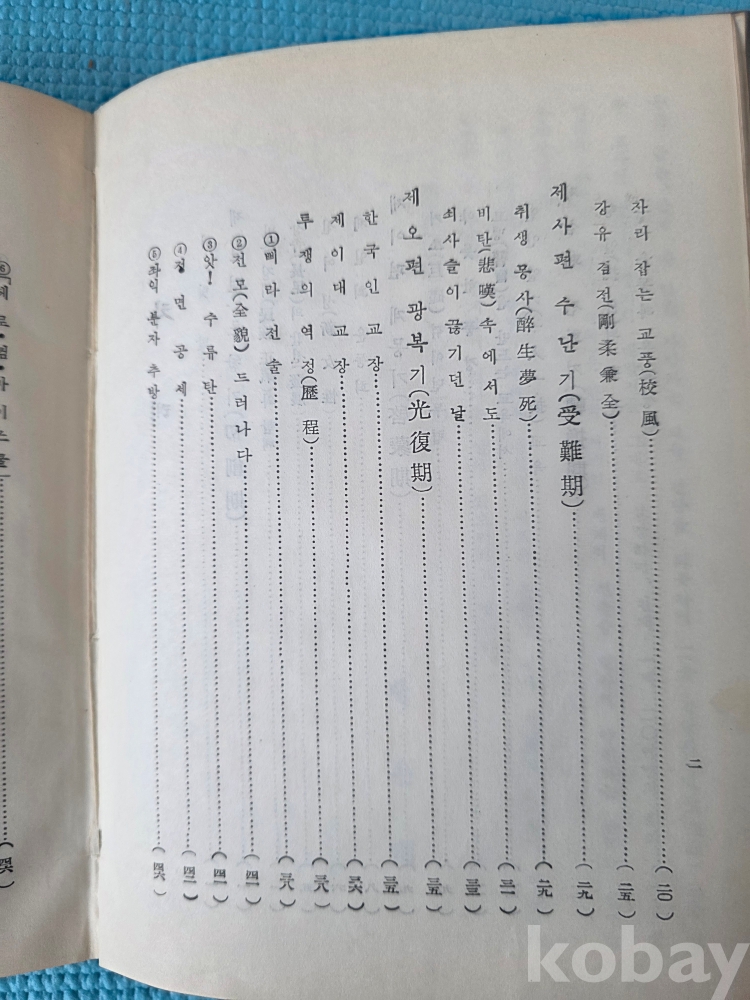 자라 잡는 교풍(校風)……(二〇)
강유 겸전(剛柔兼全)……(二五)
제 사 편 수 난 기(受難期)……(二九)
취생 몽사(醉生夢死)……(二九)
비탄(悲嘆) 속에서도……(三一)
쇠사슬이 끊기던 날……(三三)
제 오 편 광 복 기(光復期)……(三五)
한국인 교장……(三五)
제 이대 교장……(三六)
투쟁의 역정(歷程)……(三八)
① 삐라전술……(三八)
② 전모(全貌) 드러나다……(四一)
③ 앗! 수류탄……(四一)
④ 정면 공세……(四二)
⑤ 좌익 분자 추방……(四六)
二
⑥
(四六)
kobay